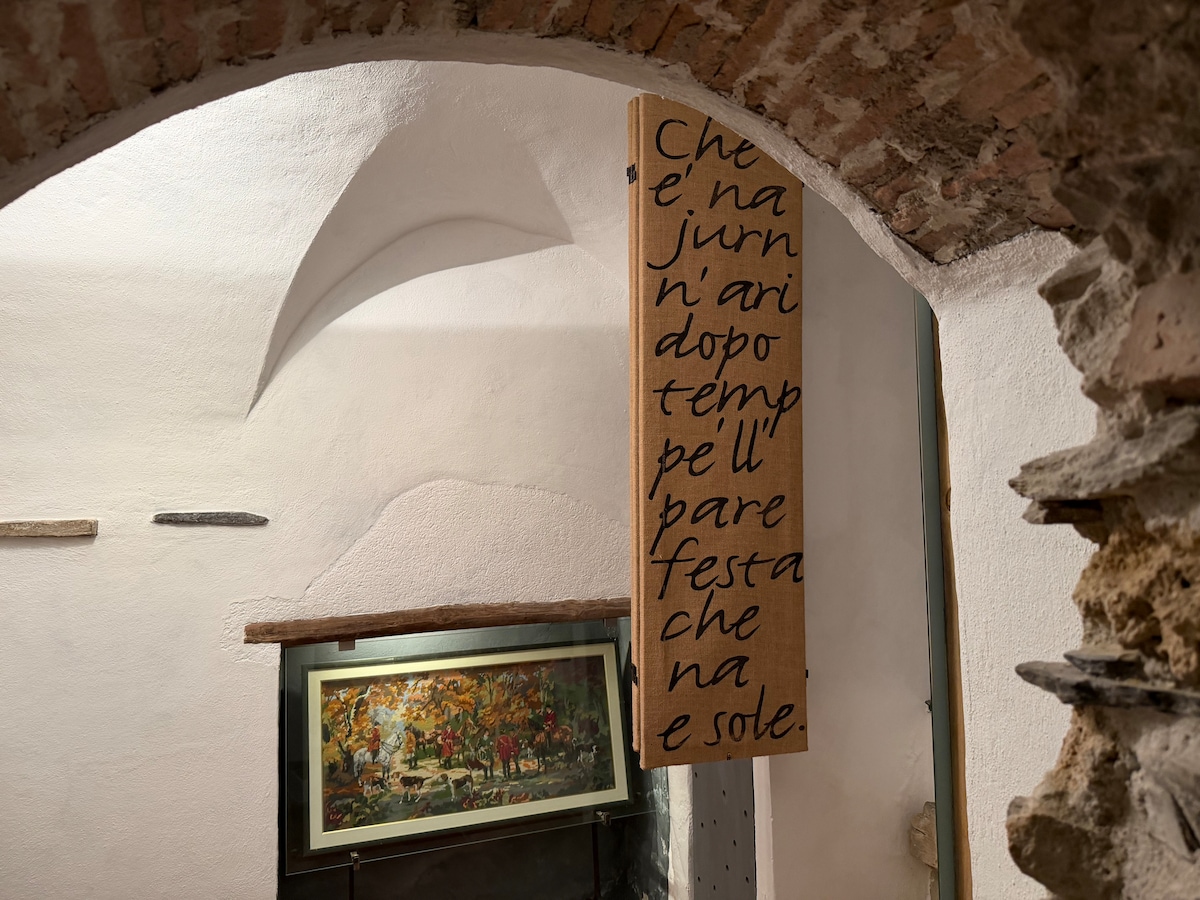 Che
e' na
jurn
n'ari
dopo
temp
pe' ll'
pare
festa
che
na
e sole.